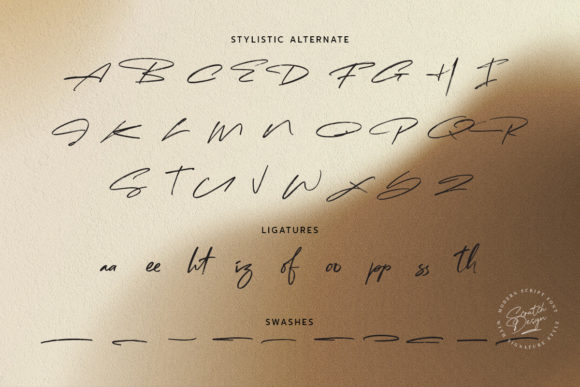 STYLISTIC ALTERNATE
A B C E D F G H I
J K L M N O P Q R
S T U V W X Y Z
LIGATURES
aa ee ht iz of oo pp ss th
SWASHES
MODERN SCRIPT FONT
Scratch
Design
WITH SIGNATURE STYLE